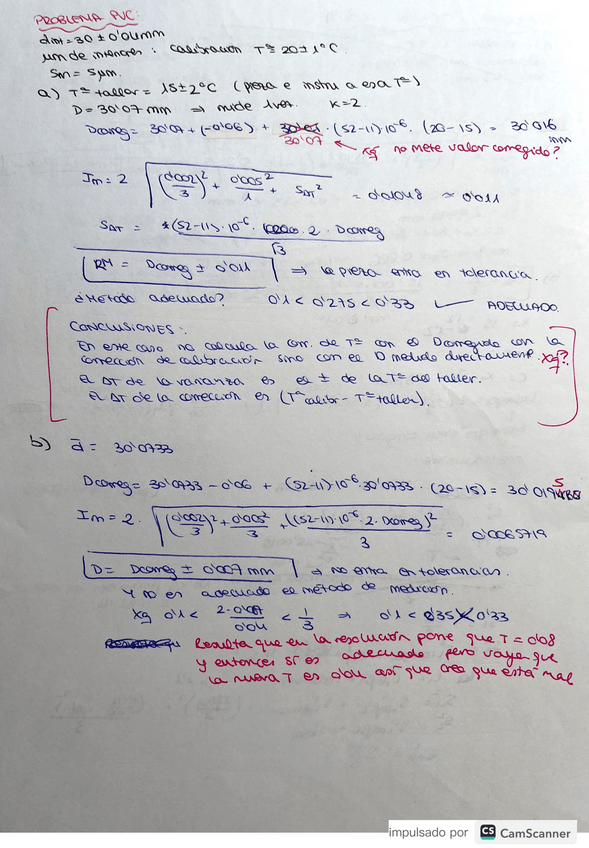 PROBLEMA PVC:
dim = 30 ± 0'04mm
calibración Tª = 20 ± 1ºC.
Sm = 5µm.
a) Tª taller = 15 ± 2ºC (pieza e instru a esa Tª)
D = 30'07 mm ⇒ mide 1 vez. K=2.
Dcorreg = 30'07 + (-0'06) + 30'07 · (52-11)·10⁻⁶ · (20-15) = 30'016 mm
xq no mete valor corregido?
Im = 2 √((0'002/3)² + 0'005²/1 + S_ΔT²) = 0'01048 ≈ 0'011
S_ΔT = (52-11)·10⁻⁶ · 2 · Dcorreg / √3
RM = Dcorreg ± 0'011 ⇒ la pieza entra en tolerancia.
¿Método adecuado? 0'1 < 0'275 < 0'33 ADECUADO.
CONCLUSIONES:
En este caso no calcula la corr. de Tª con el Dcorregido con la
corrección de calibración sino con el D medido directament. xq?
El ΔT de la varianza es el ± de la Tª del taller.
El ΔT de la corrección es (Tª calibr - Tª taller).
b) d̄ = 30'0733
Dcorreg = 30'0733 - 0'06 + (52-11)·10⁻⁶ 30'0733 · (20-15) = 30'019
Im = 2 · √((0'002/3)² + 0'005²/3 + ((52-11)·10⁻⁶ · 2 · Dcorreg)²/3) = 0'0065719
D = Dcorreg ± 0'007 mm ⇒ no entra en tolerancias.
Y no es adecuado el método de medición.
xq 0'1 < 2·0'007/0'04 < 1/3 ⇒ 0'1 < 0'35 < 0'33
Resulta que en la resolución pone que T = 0'08
y entonces sí es adecuado pero vaya que
la nueva T es 0'04 así que creo que está mal
impulsado por CS CamScanner